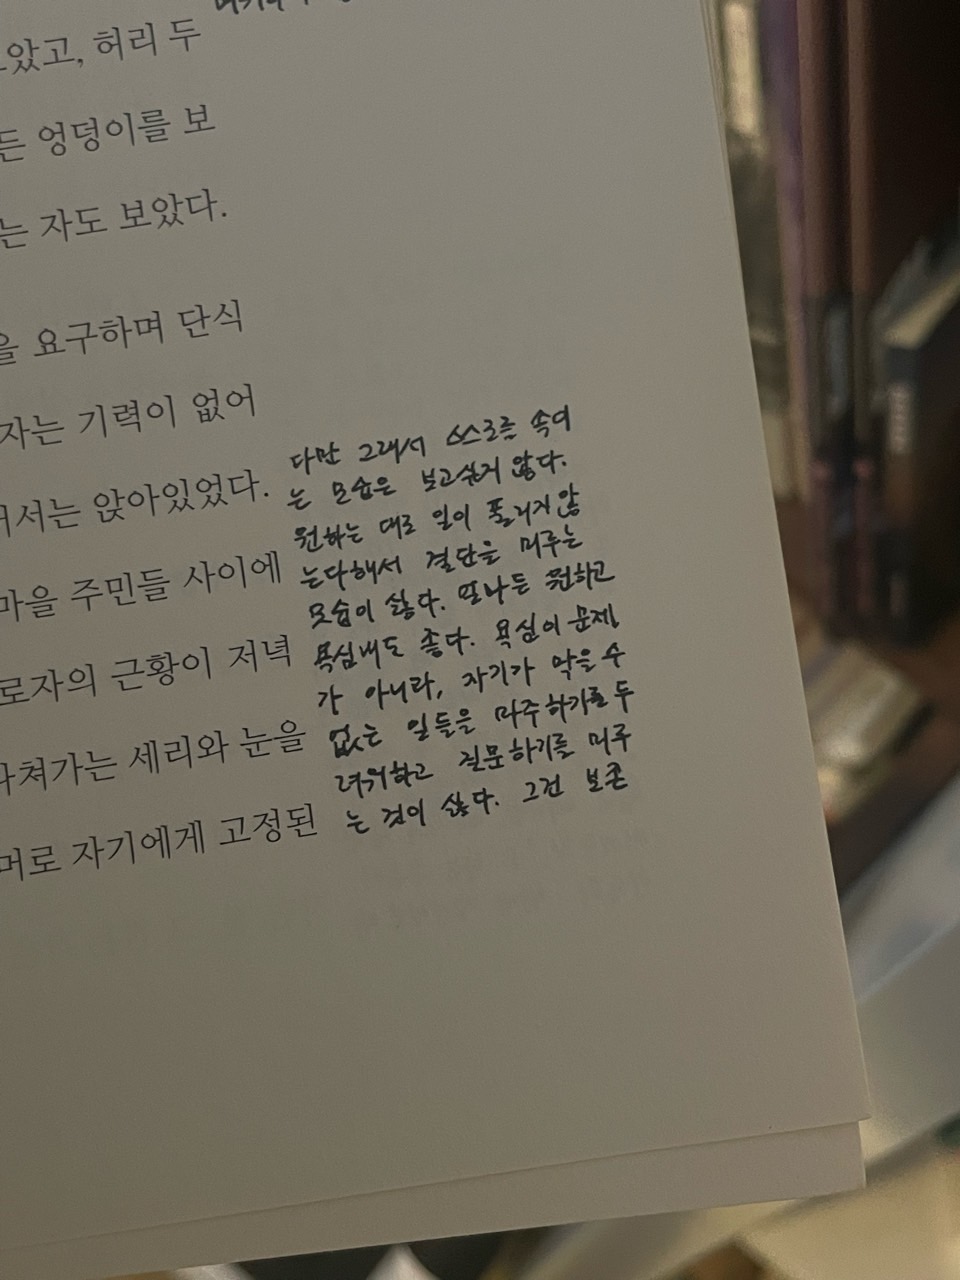 았고, 허리 두
든 엉덩이를 보
는 자도 보았다.
을 요구하며 단식
자는 기력이 없어
서는 앉아있었다.
마을 주민들 사이에
로자의 근황이 저녁
쳐가는 세리와 눈을
머로 자기에게 고정된
다만 그래서 스스로를 속이
는 모습은 보고싶지 않다.
원하는 대로 일이 풀리지 않
는다해서 결단을 미루는
모습이 싫다. 얼마든 원하고
욕심내도 좋다. 욕심이 문제
가 아니라, 자기가 막을 수
없는 일들을 마주하기를 두
려워하고 질문하기를 미루
는 것이 싫다. 그건 보존